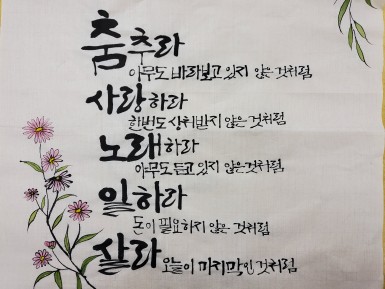 춤추라
아무도 바라보고 있지 않은 것처럼
사랑하라
한번도 상처받지 않은 것처럼
노래하라
아무도 듣고 있지 않은 것처럼
일하라
돈이 필요하지 않은 것처럼
살라 오늘이 마지막인 것처럼